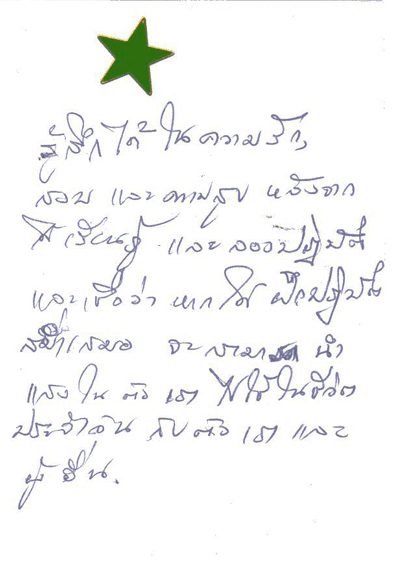 รู้สึกได้ในความรัก,
สงบ และความสุข หลังจาก
ได้เรียนรู้ และลองปฏิบัติ
และเชื่อว่า หากได้ฝึกปฏิบัติ
สม่ำเสมอ จะสามารถนำ
แสงใน ตัว เรา ไปใช้ในชีวิต
ประจำวัน กับตัว เรา และ
ผู้อื่น.